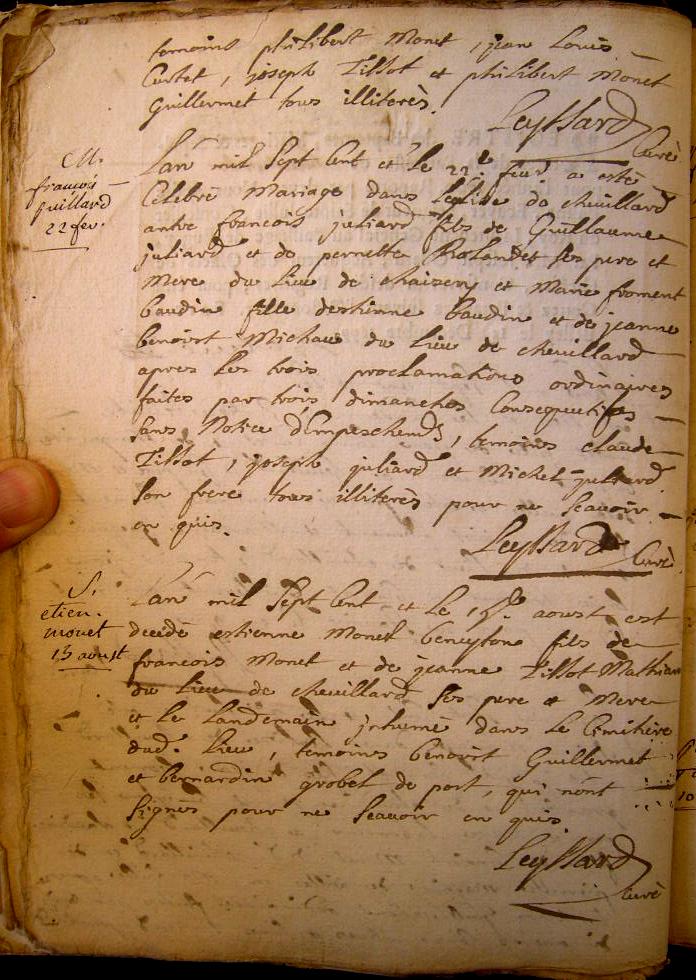 temoins philibert Monet, jean Louis
Curtet, joseph Tissot et philibert Monet
Guillermet tous illiterés.
Leyssard Curé
M.
françois
juillard
22 fev.
L'an mil Sept Cent et le 22e. fevr. a esté
Celebré Mariage dans Leglise de chevillard
antre francois juliard fils de Guillaume
juliard et de pernette Rolandet ses pere et
mere du Lieu de chaizery et Marie froment
baudin fille destienne baudin et de jeanne
benoist Michau du Lieu de chevillard
apres les trois proclamations ordinaires
faites par trois dimanches Consequutifs
sans Notice d'Empeschemt, temoins claude
Tissot, joseph juliard et Michel juliard
son frere tous illiterés pour ne Scavoir
en quis.
Leyssard Curé
S.
etien.
monet
13 aoust
L'an mil Sept Cent et le aoust est
decedé estienne Monet beneytone fils de
francois Monet et de jeanne Tissot Mathian
du Lieu de chevillard ses pere et Mere
et le Landemain inhumé dans le Cimitiere
dud. Lieu, temoins benoist Guillermet
et bernardin grobet de port, qui n'ont
Signés pour ne Scavoir en quis
Leyssard
curé
10